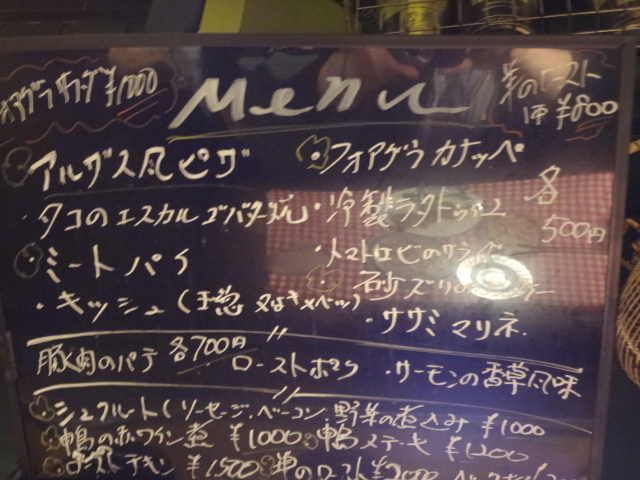 Menu
¥1000
ロースト
1P ¥800
アルザス風ピザ
・フォアグラ カナッペ
・タコのエスカルゴバター
・冷製ラタトゥイユ
各
500円
・ミートパイ
・トマトロピのサラダ
・キッシュ(玉葱 又はキャベツ)
砂ズリの
・ササミマリネ
豚肉のパテ 各700円 ローストポーク ・サーモンの香草風味
シュクルート(ソーセージ、ベーコン、野菜の煮込み ¥1000
鴨の赤ワイン煮 ¥1000 鴨ステーキ ¥1200
ローストチキン ¥1500 のロースト